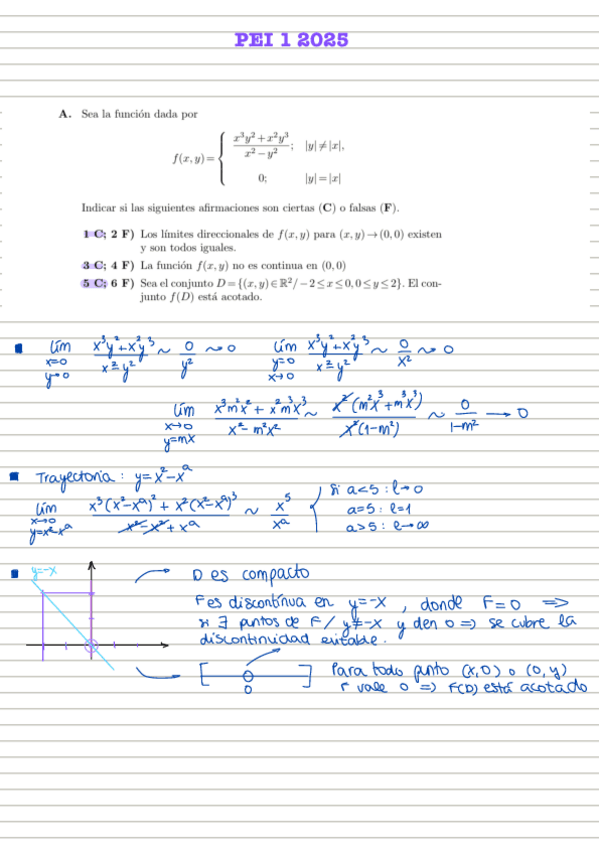 PEI 1 2025
A. Sea la función dada por
f(x, y) = { x³y² + x²y³ / x² − y² ; |y| ≠ |x|,
0; |y| = |x|
Indicar si las siguientes afirmaciones son ciertas (C) o falsas (F).
1 C; 2 F) Los límites direccionales de f(x, y) para (x, y) → (0, 0) existen
y son todos iguales.
3 C; 4 F) La función f(x, y) no es continua en (0, 0)
5 C; 6 F) Sea el conjunto D = {(x, y) ∈ ℝ² / −2 ≤ x ≤ 0, 0 ≤ y ≤ 2}. El con-
junto f(D) está acotado.
lím x=0 y→0 x³y²+x²y³ / x²−y² ~ 0/y² ~> 0 lím y=0 x→0 x³y²+x²y³ / x²−y² ~ 0/x² ~> 0
lím x→0 y=mx x³m²x² + x²m³x³ / x²−m²x² ~ x²(m²x³+m³x³) / x²(1−m²) ~ 0 / 1−m² → 0
Trayectoria: y=x²−xᵃ
lím x→0 y=x²−xᵃ x³(x²−xᵃ)² + x²(x²−xᵃ)³ / x²−x²+xᵃ ~ x⁵/xᵃ
si a<5 : l→0
a=5 : l=1
a>5 : l→∞
y=−x
D es compacto
F es discontínua en y=−x, donde F=0 ⇒
∄ puntos de F / y≠−x y den 0 ⇒ se cubre la
discontinuidad evitable.
0
Para todo punto (x,0) o (0,y)
f vale 0 ⇒ F(D) está acotado